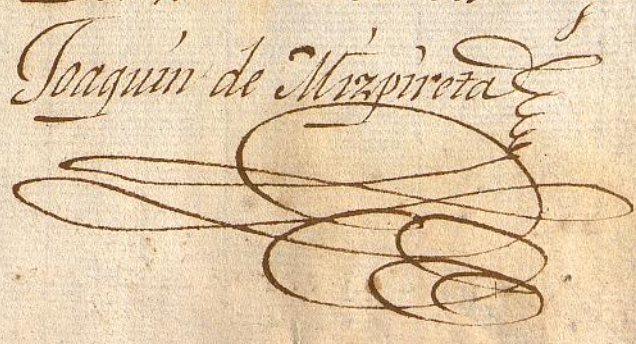 Joaquin de Mizpireta